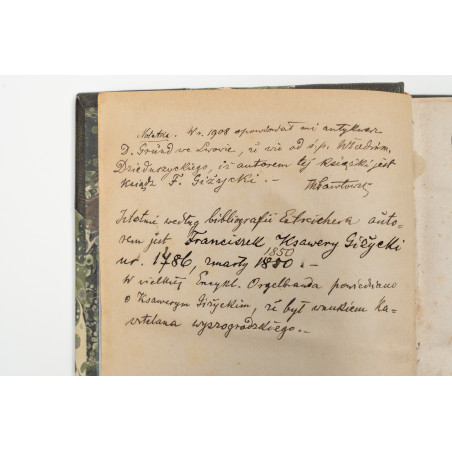 Notatka. W r. 1908 opowiadał mi antykwarz
D. Gründ we Lwowie, iż wie od ś. p. Włodzim.
Dzieduszyckiego, iż autorem tej książki jest
ksiądz F. Giżycki. —
Istotnie według bibliografii Estreichera auto=
rem jest Franciszek Ksawery Giżycki
ur. 1786, zmarły 1880 1850. —
W wielkiej Encykl. Orgelbranda powiedziano
o Ksawerym Giżyckim, iż był wnukiem ka=
sztelana wyszogrodzkiego. —